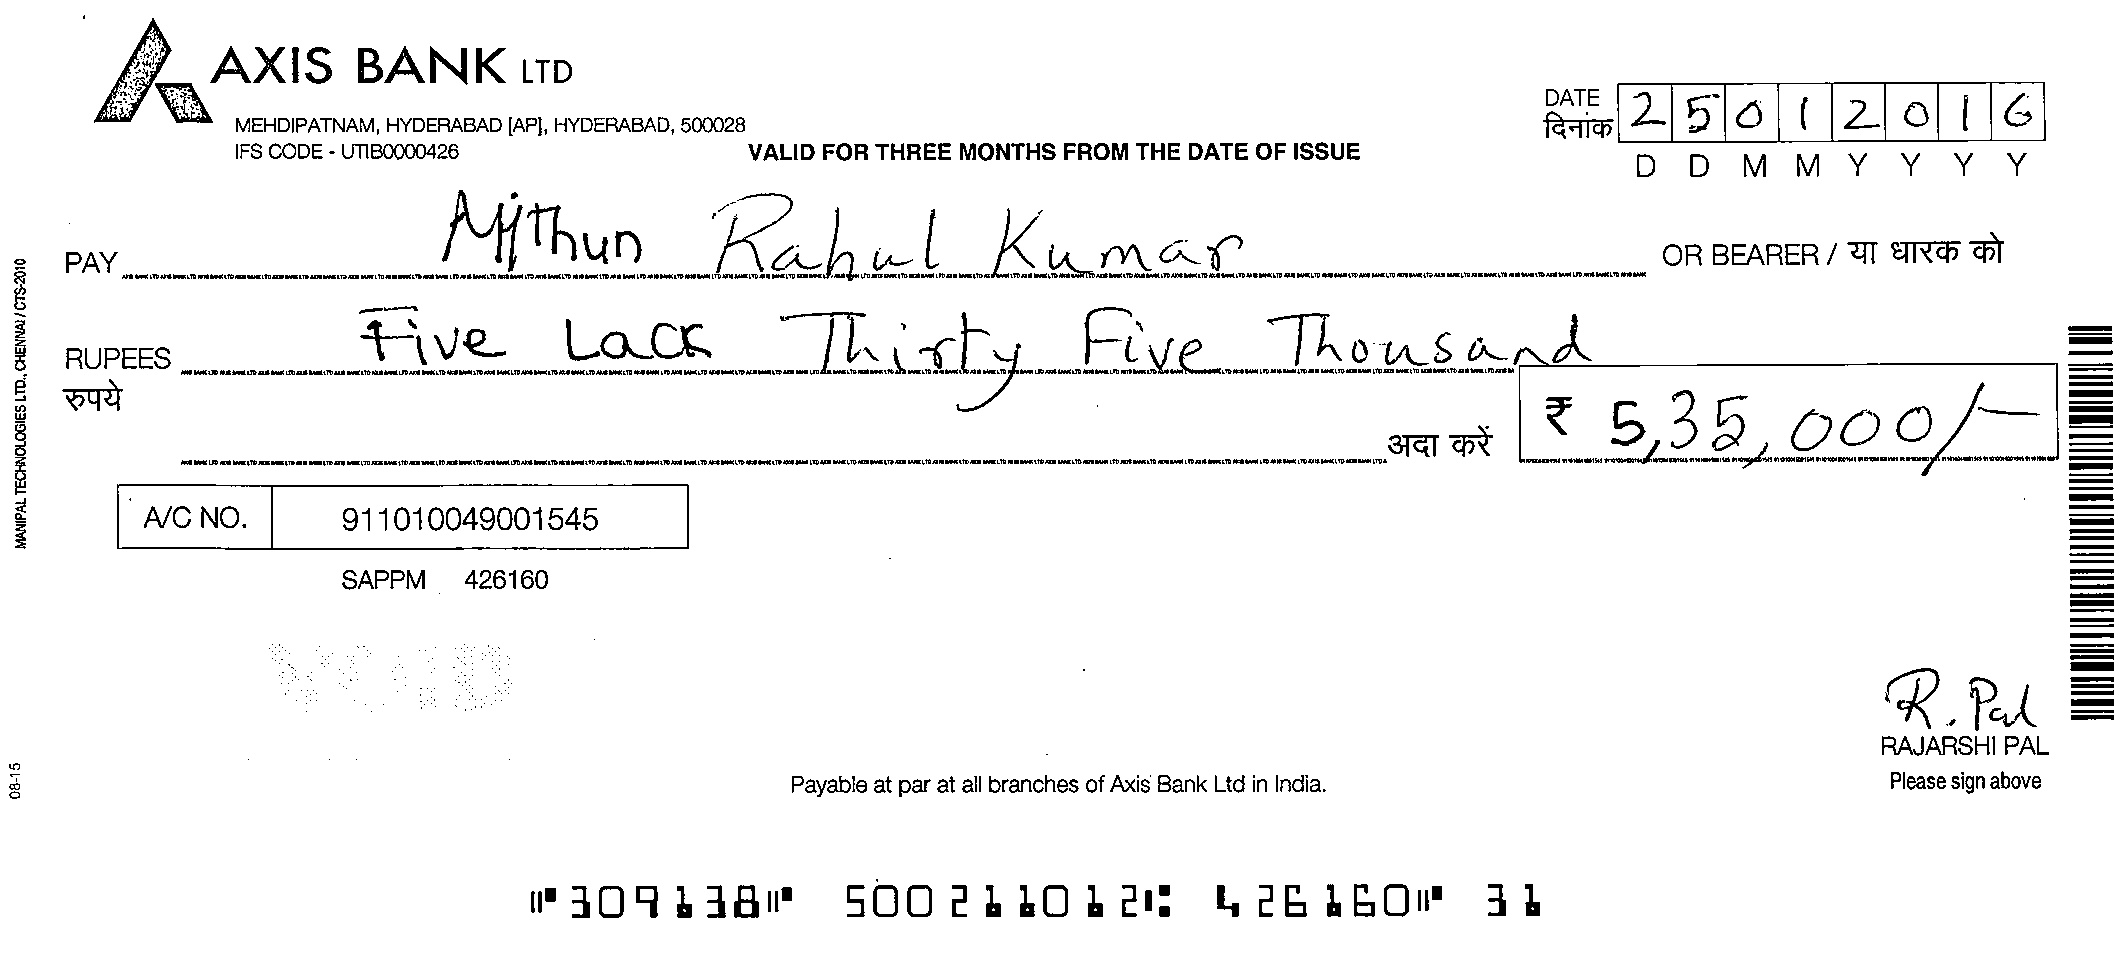 AXIS BANK LTD
MEHDIPATNAM, HYDERABAD [AP], HYDERABAD, 500028
IFS CODE - UTIB0000426
VALID FOR THREE MONTHS FROM THE DATE OF ISSUE
DATE दिनांक 2 5 0 1 2 0 1 6
D D M M Y Y Y Y
PAY Rahul Kumar OR BEARER / या धारक को
RUPEES रुपये Five Lack Thirty Five Thousand
अदा करें ₹ 5,35,000/-
A/C NO. 911010049001545
SAPPM 426160
VOID
R. Pal
RAJARSHI PAL
Please sign above
Payable at par at all branches of Axis Bank Ltd in India.
⑈309138⑈ 500211012⑆ 426160⑈ 31
MANIPAL TECHNOLOGIES LTD., CHENNAI / CTS-2010
08-15